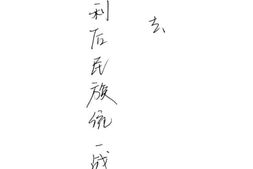 去
利后民族统一战